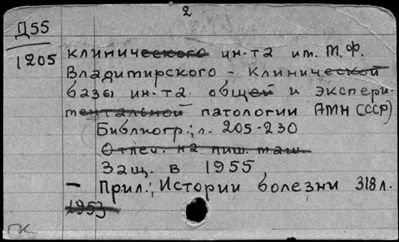 2
Д55
1205
клинического ин-та им. М.Ф.
Владимирского - Клинической
базы ин-та общей и экспери-
ментальной патологии АМН (СССР)
Библиогр.: л. 205-230
Отпеч. на пиш. маш.
Защ. в 1955
- Прил.: Истории болезни 318 л.
1953
ГК